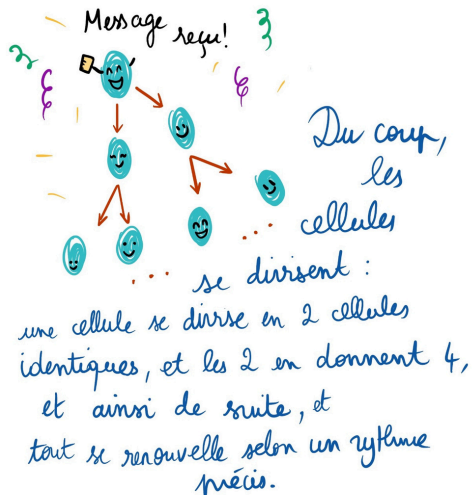 Message reçu!
Du coup,
les
cellules
...
...
se divisent :
une cellule se divise en 2 cellules
identiques, et les 2 en donnent 4,
et ainsi de suite, et
tout se renouvelle selon un rythme
précis.